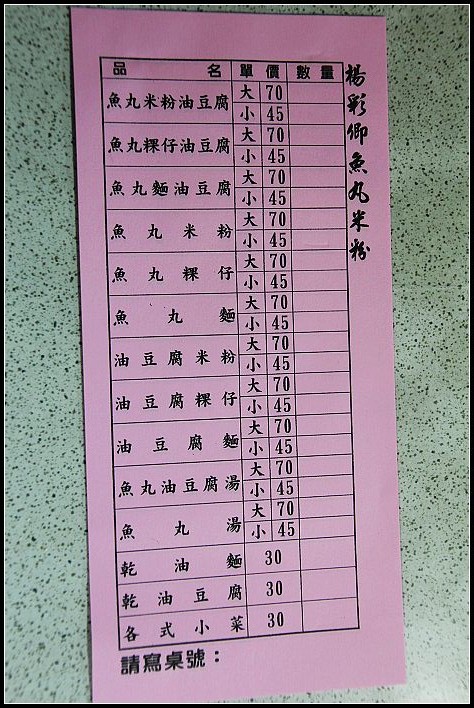 楊彩卿魚丸米粉
品名 單價 數量
魚丸米粉油豆腐 大 70
小 45
魚丸粿仔油豆腐 大 70
小 45
魚丸麵油豆腐 大 70
小 45
魚丸米粉 大 70
小 45
魚丸粿仔 大 70
小 45
魚丸麵 大 70
小 45
油豆腐米粉 大 70
小 45
油豆腐粿仔 大 70
小 45
油豆腐麵 大 70
小 45
魚丸油豆腐湯 大 70
小 45
魚丸湯 大 70
小 45
乾油麵 30
乾油豆腐 30
各式小菜 30
請寫桌號：